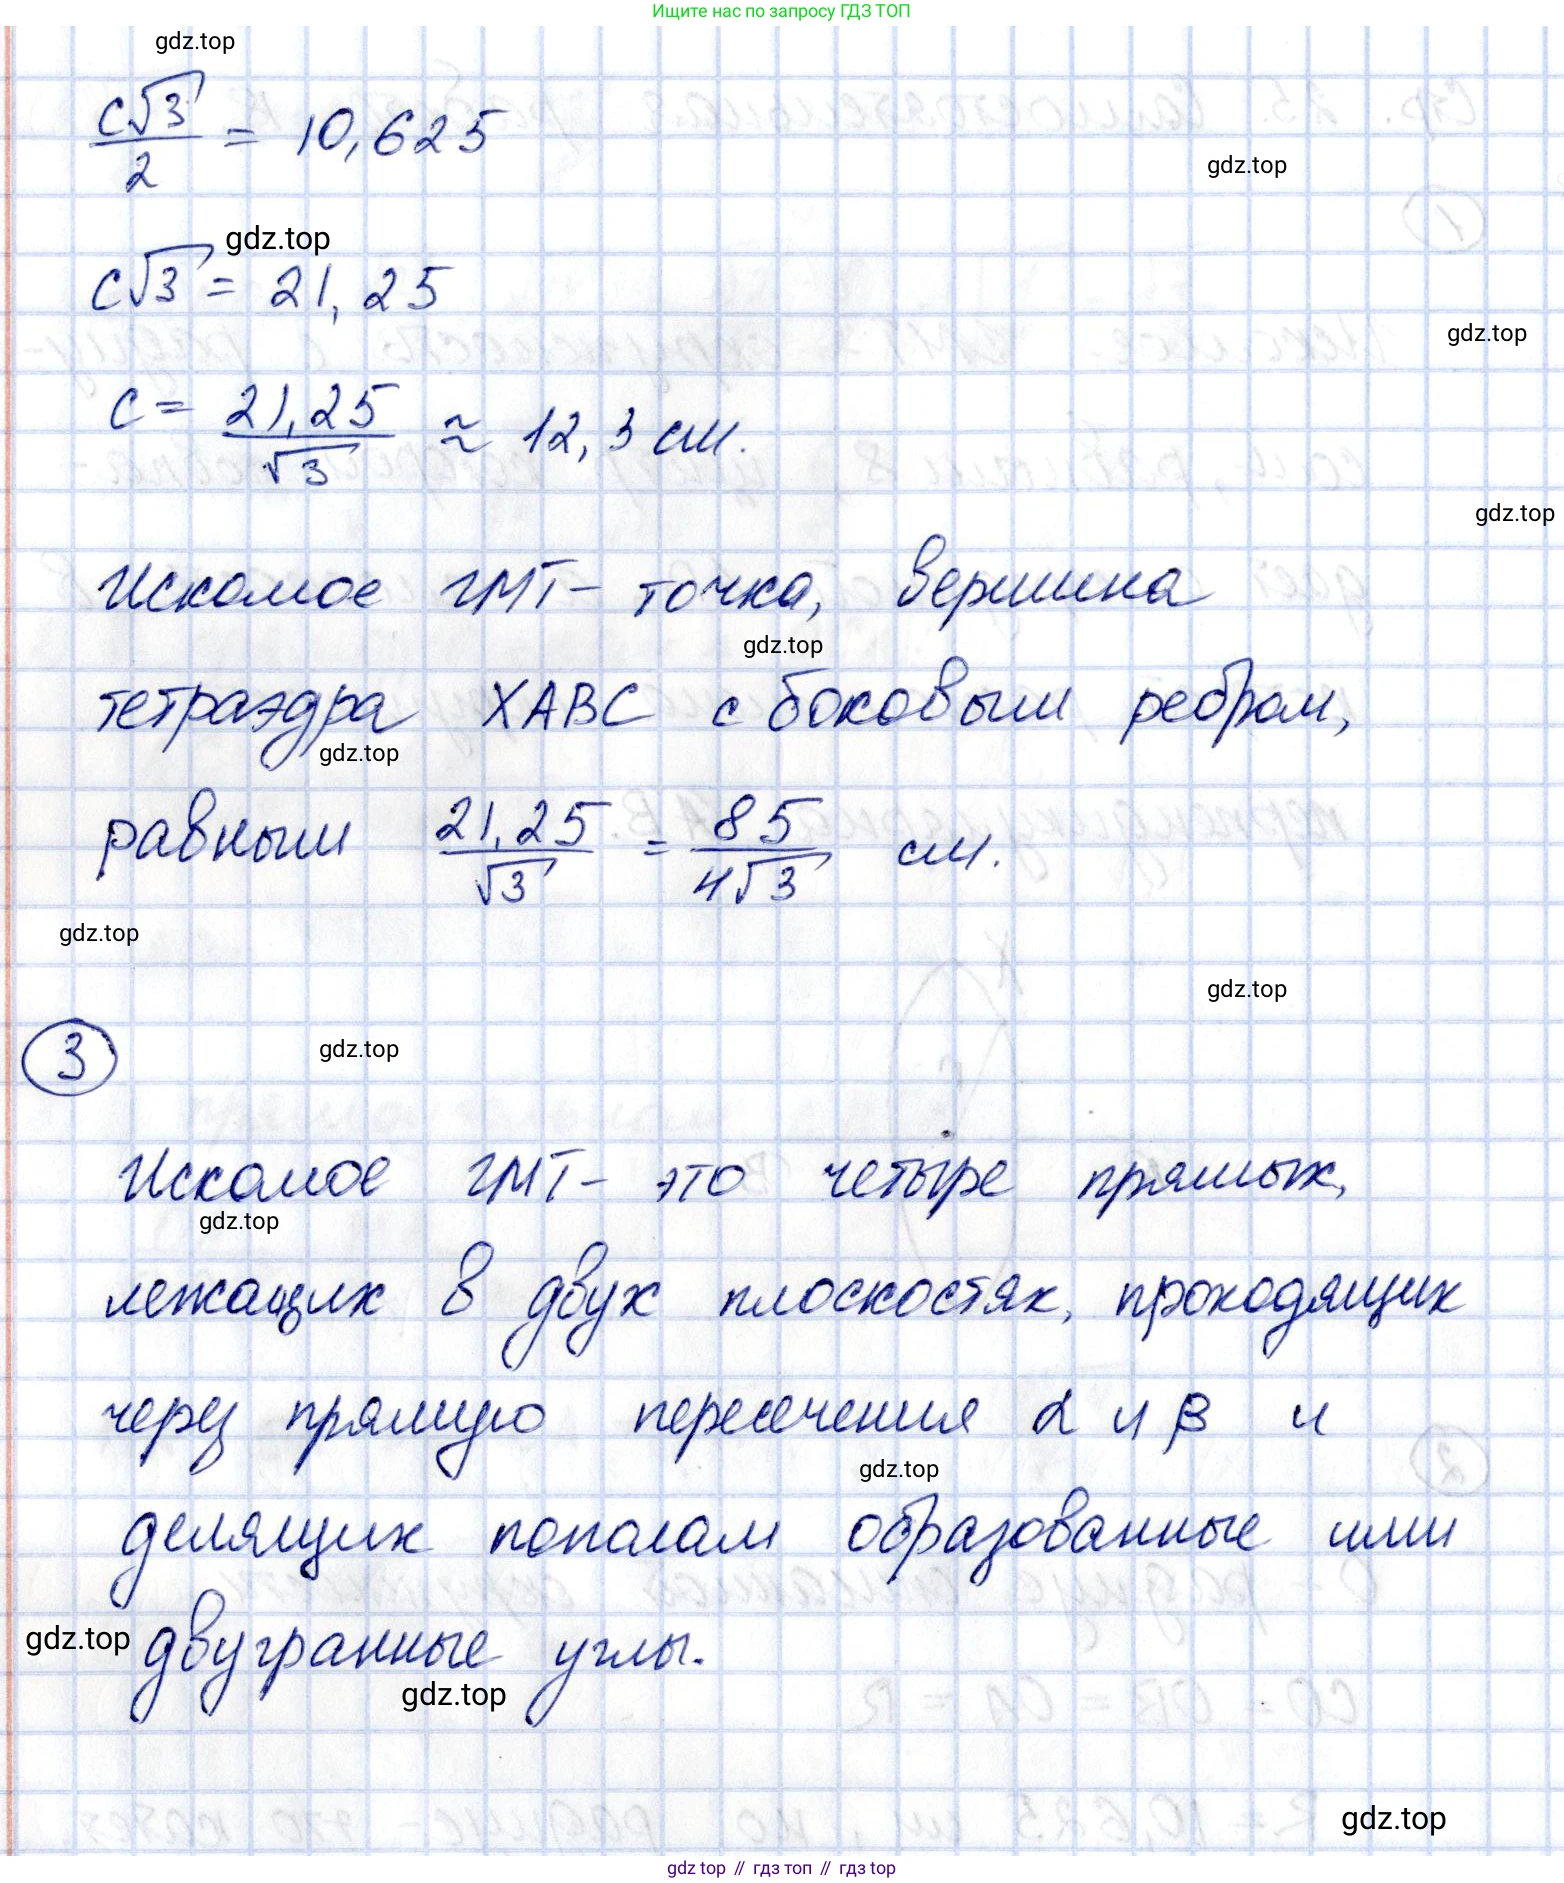 Ищите нас по запросу ГДЗ ТОП
gdz.top
c√3/2 = 10,625
gdz.top
gdz.top
c√3 = 21,25
gdz.top
c = 21,25/√3 ≈ 12,3 см.
gdz.top
Искомое ГМТ - точка, вершина
gdz.top
тетраэдра XABC с боковым ребром,
gdz.top
равным 21,25/√3 = 85/4√3 см.
gdz.top
gdz.top
3
gdz.top
Искомое ГМТ - это четыре прямых,
gdz.top
лежащих в двух плоскостях, проходящих
через прямую пересечения α и β и
gdz.top
делящих пополам образованные ими
gdz.top
двугранные углы.
gdz.top
gdz.top
gdz top // гдз топ // гдз top